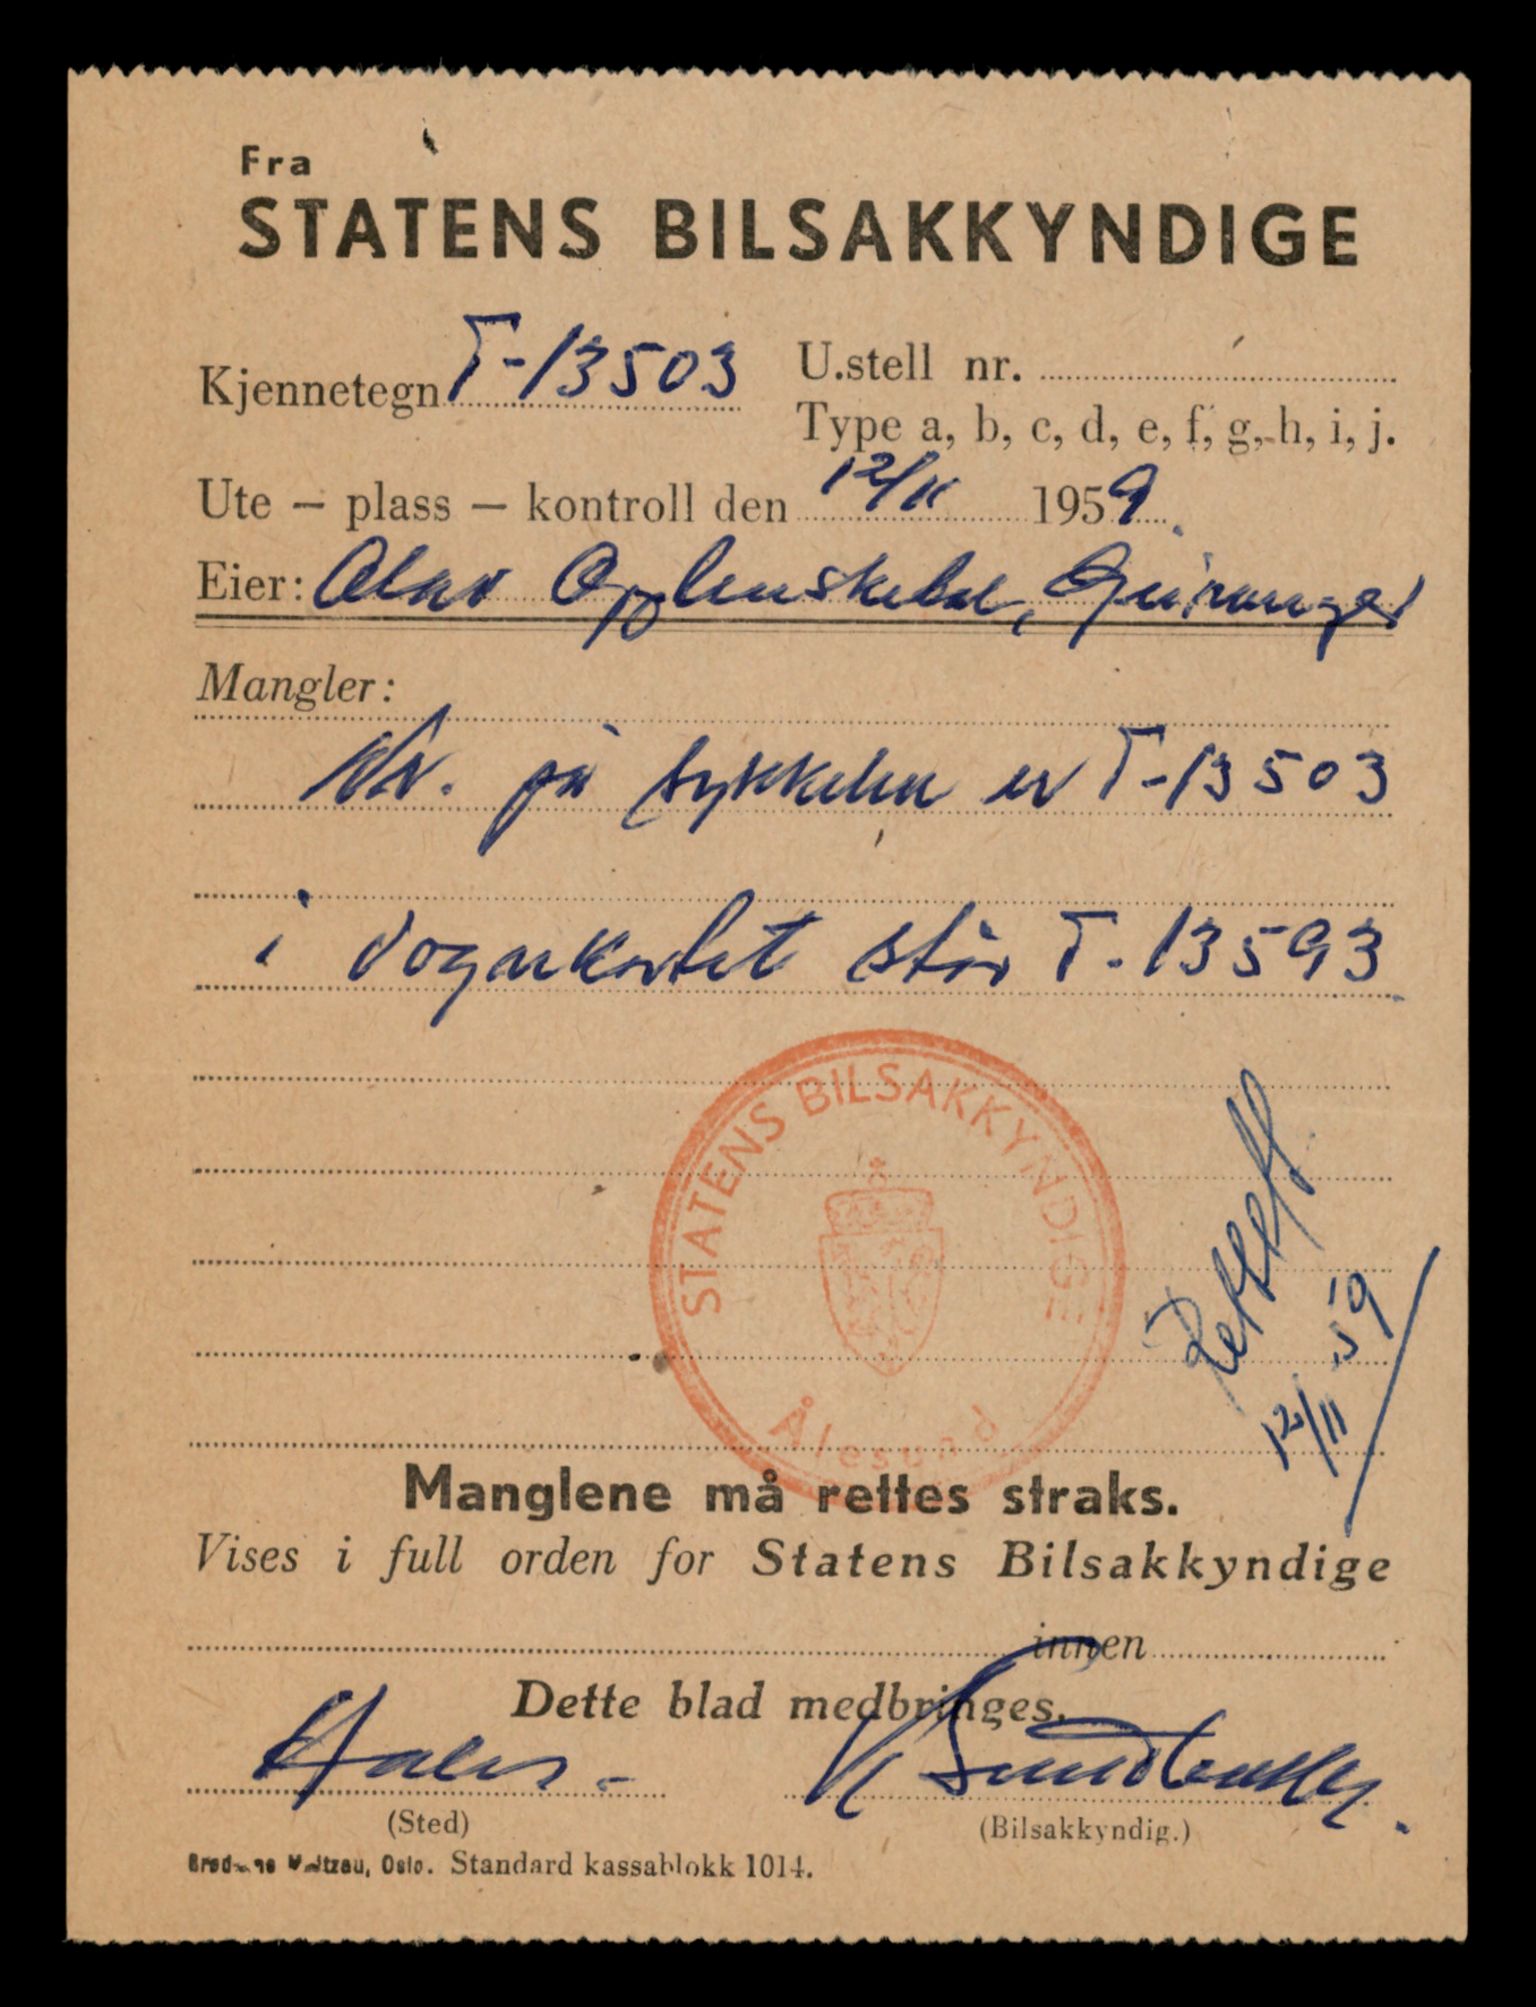 Fra
STATENS BILSAKKYNDIGE
Kjennetegn T-13503
U.stell nr.
Type a, b, c, d, e, f, g, h, i, j.
Ute – plass – kontroll den 12/11 1959.
Eier: Olav Opplenskedal, Geiranger
Mangler:
Nr. på sykkelen er T-13503
i vognkortet står T-13593
STATENS BILSAKKYNDIGE
Ålesund
Rettet
12/11 59
Manglene må rettes straks.
Vises i full orden for Statens Bilsakkyndige
innen
Dette blad medbringes.
(Sted)
(Bilsakkyndig.)
Oslo. Standard kassablokk 1014.